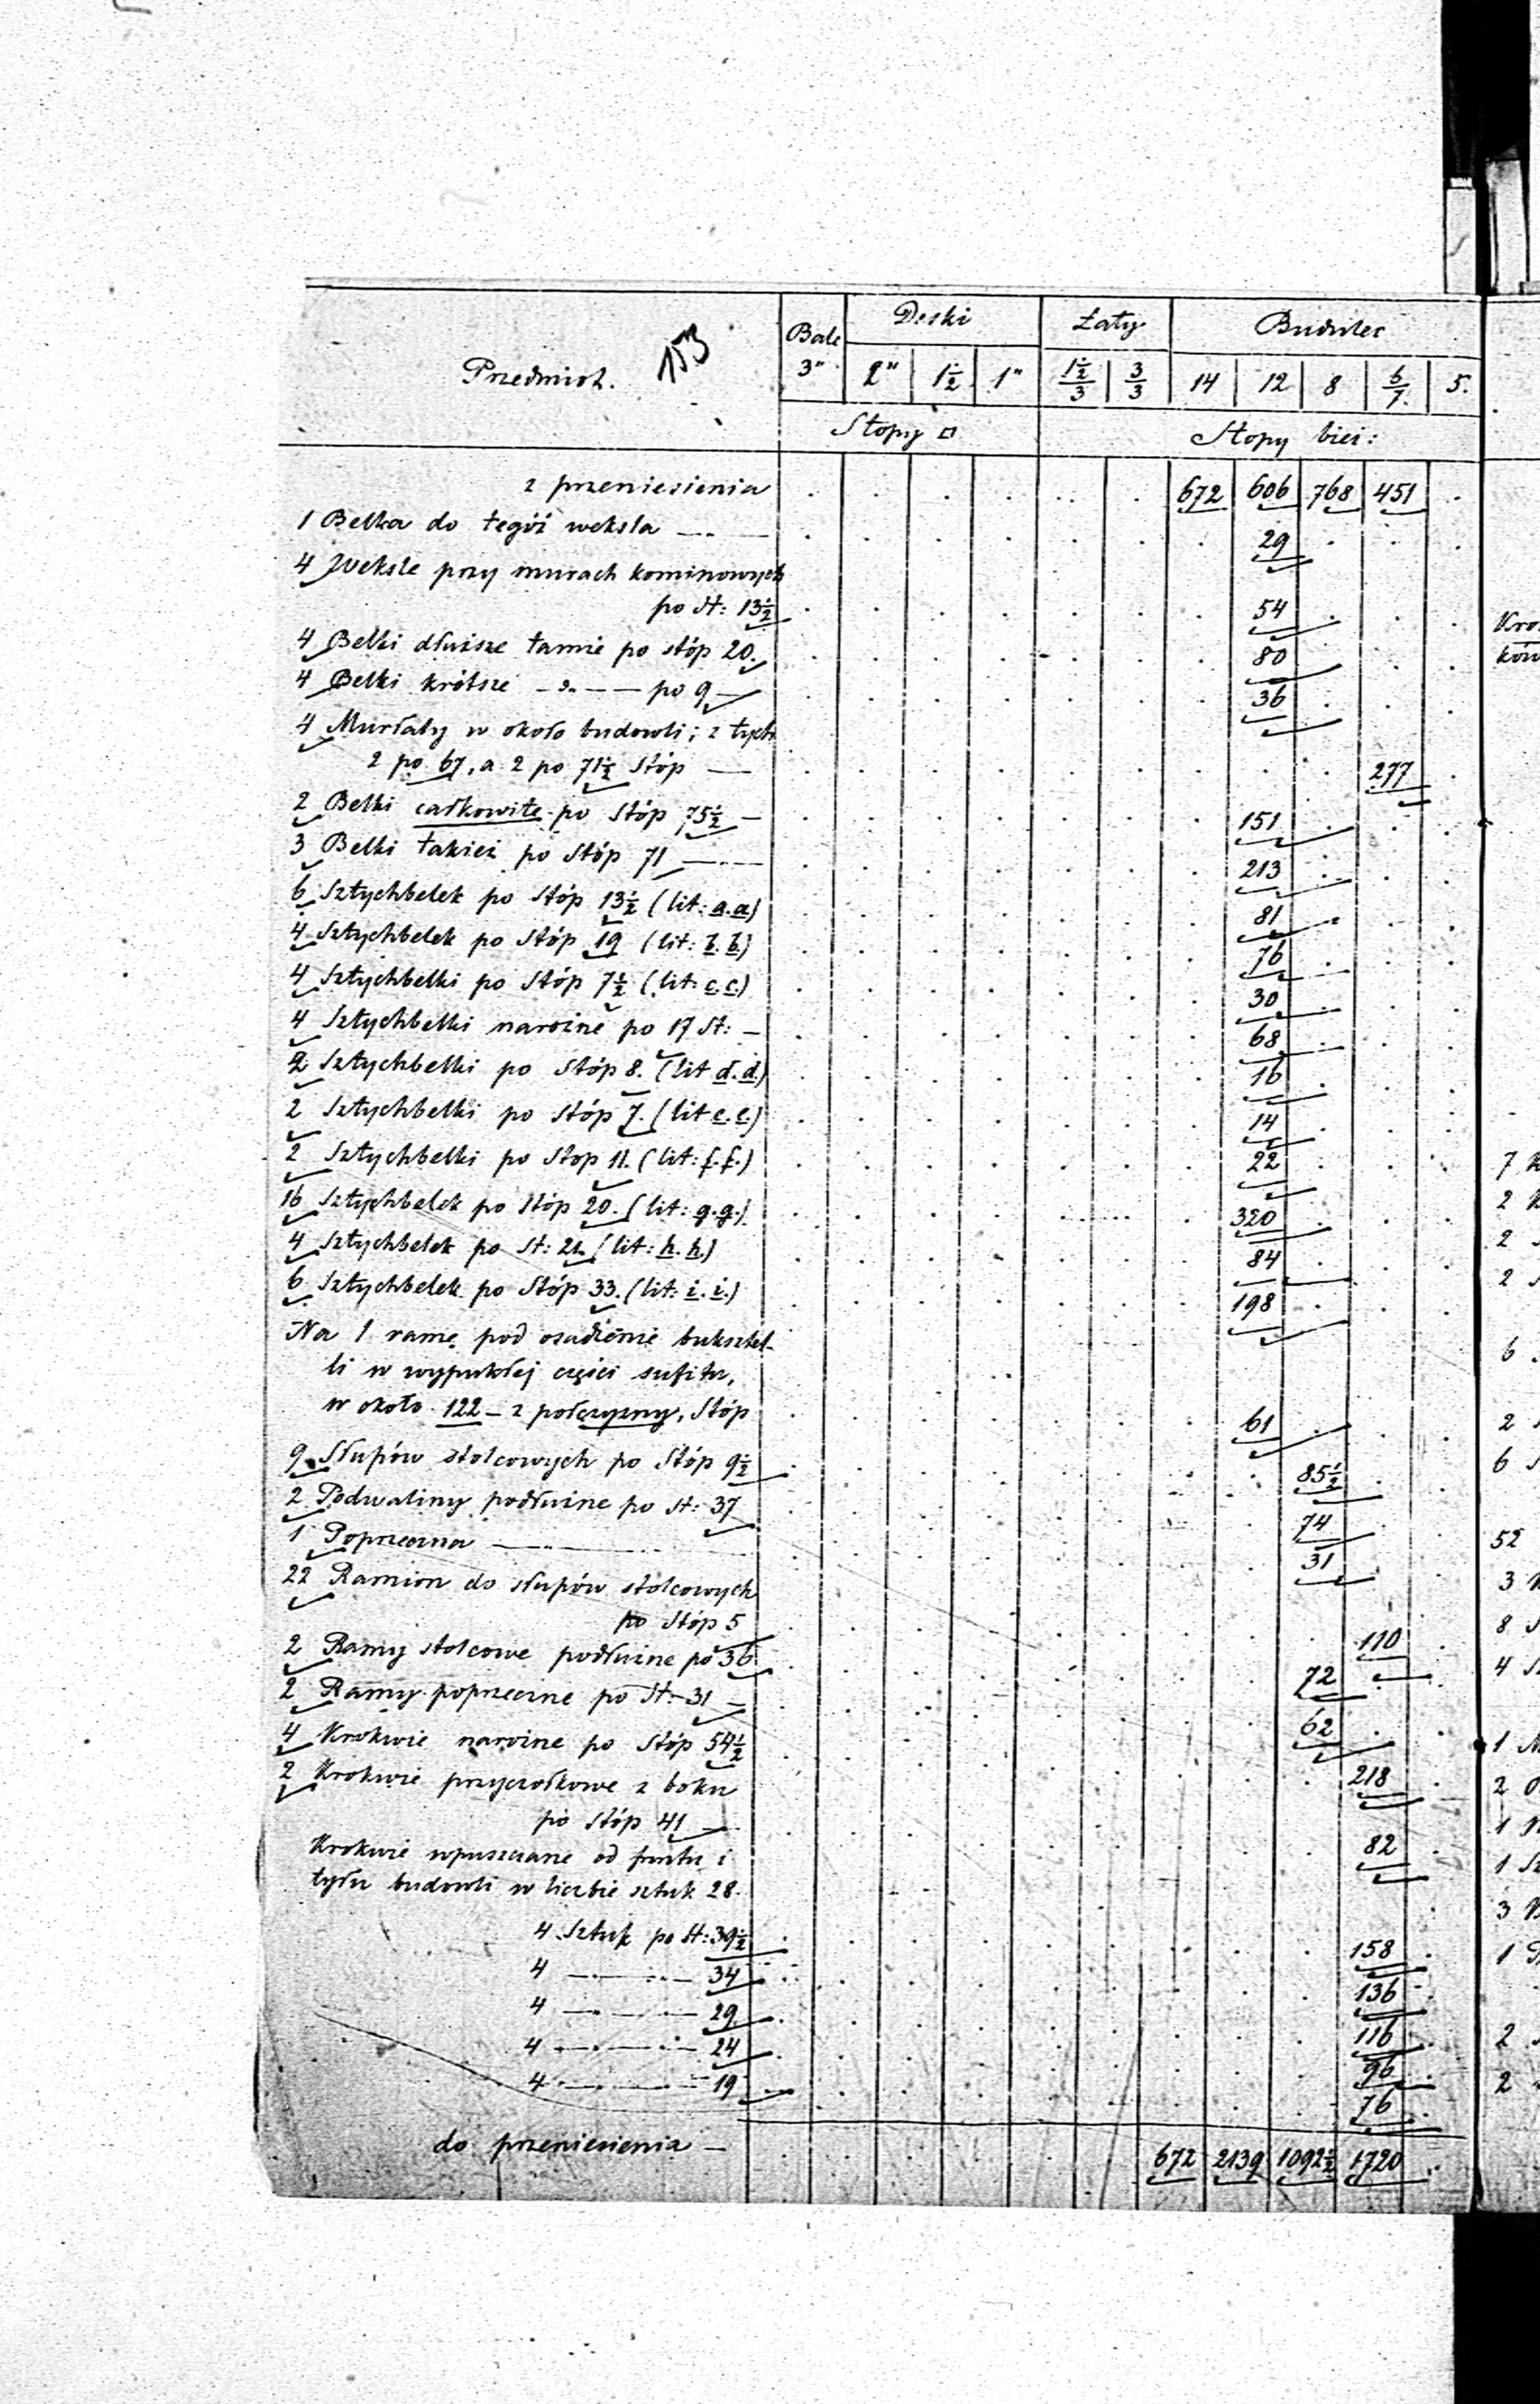 Przedmiot. 153 Bale 3" Deski Łaty Budulec
2" 1½ 1" 1½/3 3/3 14 12 8 6/7. 5.
Stopy □ Stopy bież:
z przeniesienia 672 606 768 451
1 Belka do tegóż weksla — 29
4 Weksle przy murach kominowych
po st: 13½ 54
4 Belki dłuższe tamże po stóp 20. 80
4 Belki krótsze — „ — po 9 — 36
4 Murłaty w około budowli; z tych
2 po 67, a 2 po 71½ Stóp — 277
2 Belki całkowite po Stóp 75½ — 151
3 Belki takież po Stóp 71 — 213
6 Sztychbelek po Stóp 13½ (lit: a.a) 81
4 Sztychbelek po Stóp 19 (lit: b. b.) 76
4 Sztychbelki po Stóp 7½ (lit: c. c.) 30
4 Sztychbelki narożne po 17 St: — 68
2 Sztychbelki po Stóp 8. (lit d. d.) 16
2 Sztychbelki po Stóp 7. (lit e. e.) 14
2 Sztychbelki po Stop 11. (lit: f. f.) 22
16 Sztychbelek po Stóp 20. (lit: g. g.) 320
4 Sztychbelek po St: 21. (lit: h. h.) 84
6 Sztychbelek po Stóp 33. (lit: i. i.) 198
Na 1 ramę pod osadzenie buksztel-
li w wypukłej części sufitu,
w około 122 — z połczyzny, Stóp 61
9 Słupów stolcowych po Stóp 9½ 85½
2 Podwaliny podłużne po st: 37 74
1 Poprzeczna — 31
22 Ramion do słupów stolcowych
po Stóp 5 110
2 Ramy stolcowe podłużne po 36 72
2 Ramy poprzeczne po St: 31 — 62
4 Krokwie narożne po Stóp 54½ 218
2 Krokwie przyczołkowe z boku
po Stóp 41 — 82
Krokwie wpuszczane od frontu i
tyłu budowli w liczbie sztuk 28.
4 Sztuk po St: 39½ 158
4 — 34 136
4 — 29 116
4 — 24 96
4 — 19 76
do przeniesienia — 672 2139 1092½ 1720
7
2
2
2
6
2
6
52
3
8
4
1
2
1
1
3
1
2
2